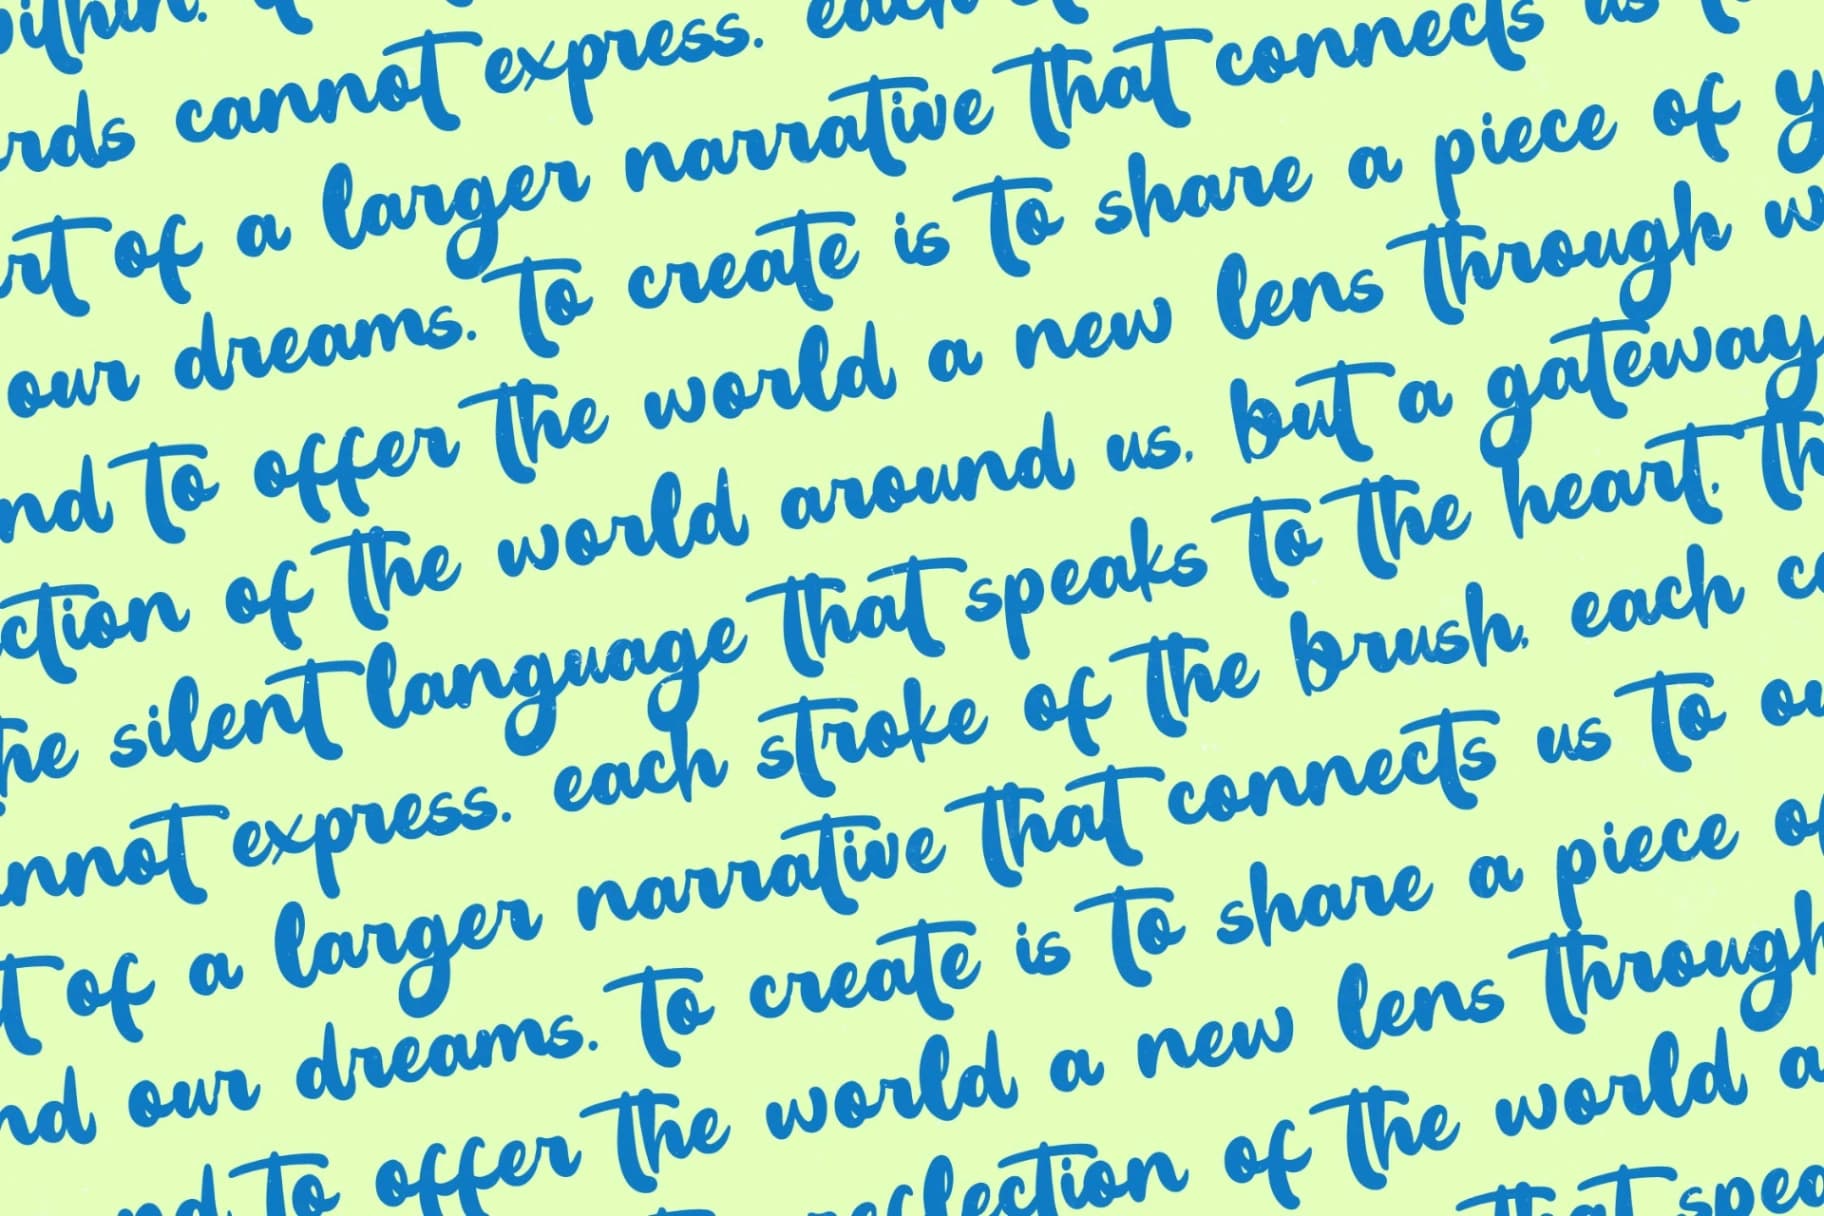 within.
cannot express. each
of a larger narrative that connects us
our dreams. to create is to share a piece of
to offer the world a new lens through
of the world around us, but a gateway
the silent language that speaks to the heart.
express. each stroke of the brush, each
of a larger narrative that connects us to
our dreams. to create is to share a piece of
to offer the world a new lens through
reflection of the world a
that